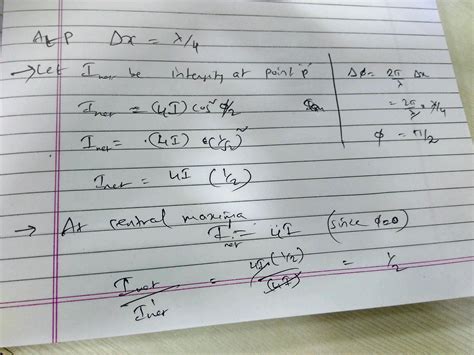 At P Δx = λ/4
→ Let I_net be intensity at point p
I_net = (4I) cos² ϕ/2
I_net = (4I) (1/√2)²
I_net = 4I (1/2)
Δϕ = 2π/λ Δx
= 2π/λ × λ/4
ϕ = π/2
→ At central maxima
I'_net = 4I (since ϕ=0)
I_net/I'_net = 4I(1/2)/(4I) = 1/2